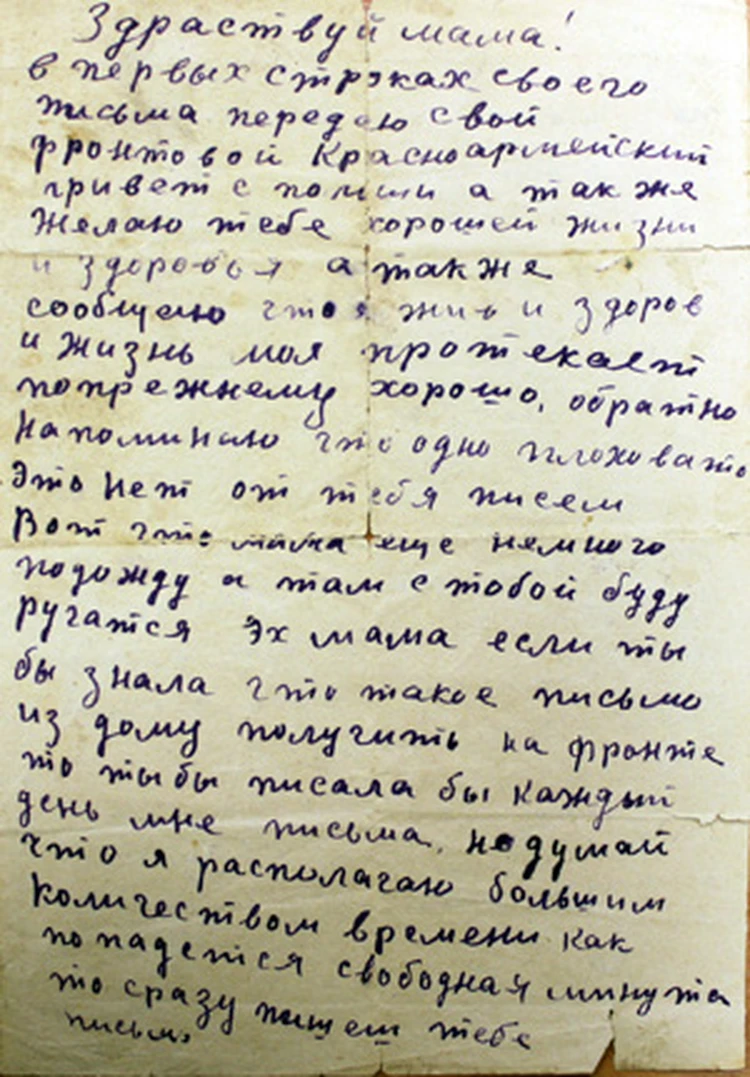 Здраствуй мама!
в первых строках своего
письма передаю свой
фронтовой Красноармейский
привет с а так же
Желаю тебе хорошей жизни
и здоровья а также
сообщаю что я жив и здоров
и жизнь моя протекает
попрежнему хорошо, обратно
Напоминаю что одно плоховато
Это Нет от тебя писем
Вот что мама еще немного
подожду а там с тобой буду
ругатся Эх мама если ты
бы знала что такое письмо
из дому получить на фронте
то ты бы писала бы каждый
день мне письма, не думай
что я располагаю большим
количеством времени как
попадется свободная минута
то сразу пишеш тебе
письмо